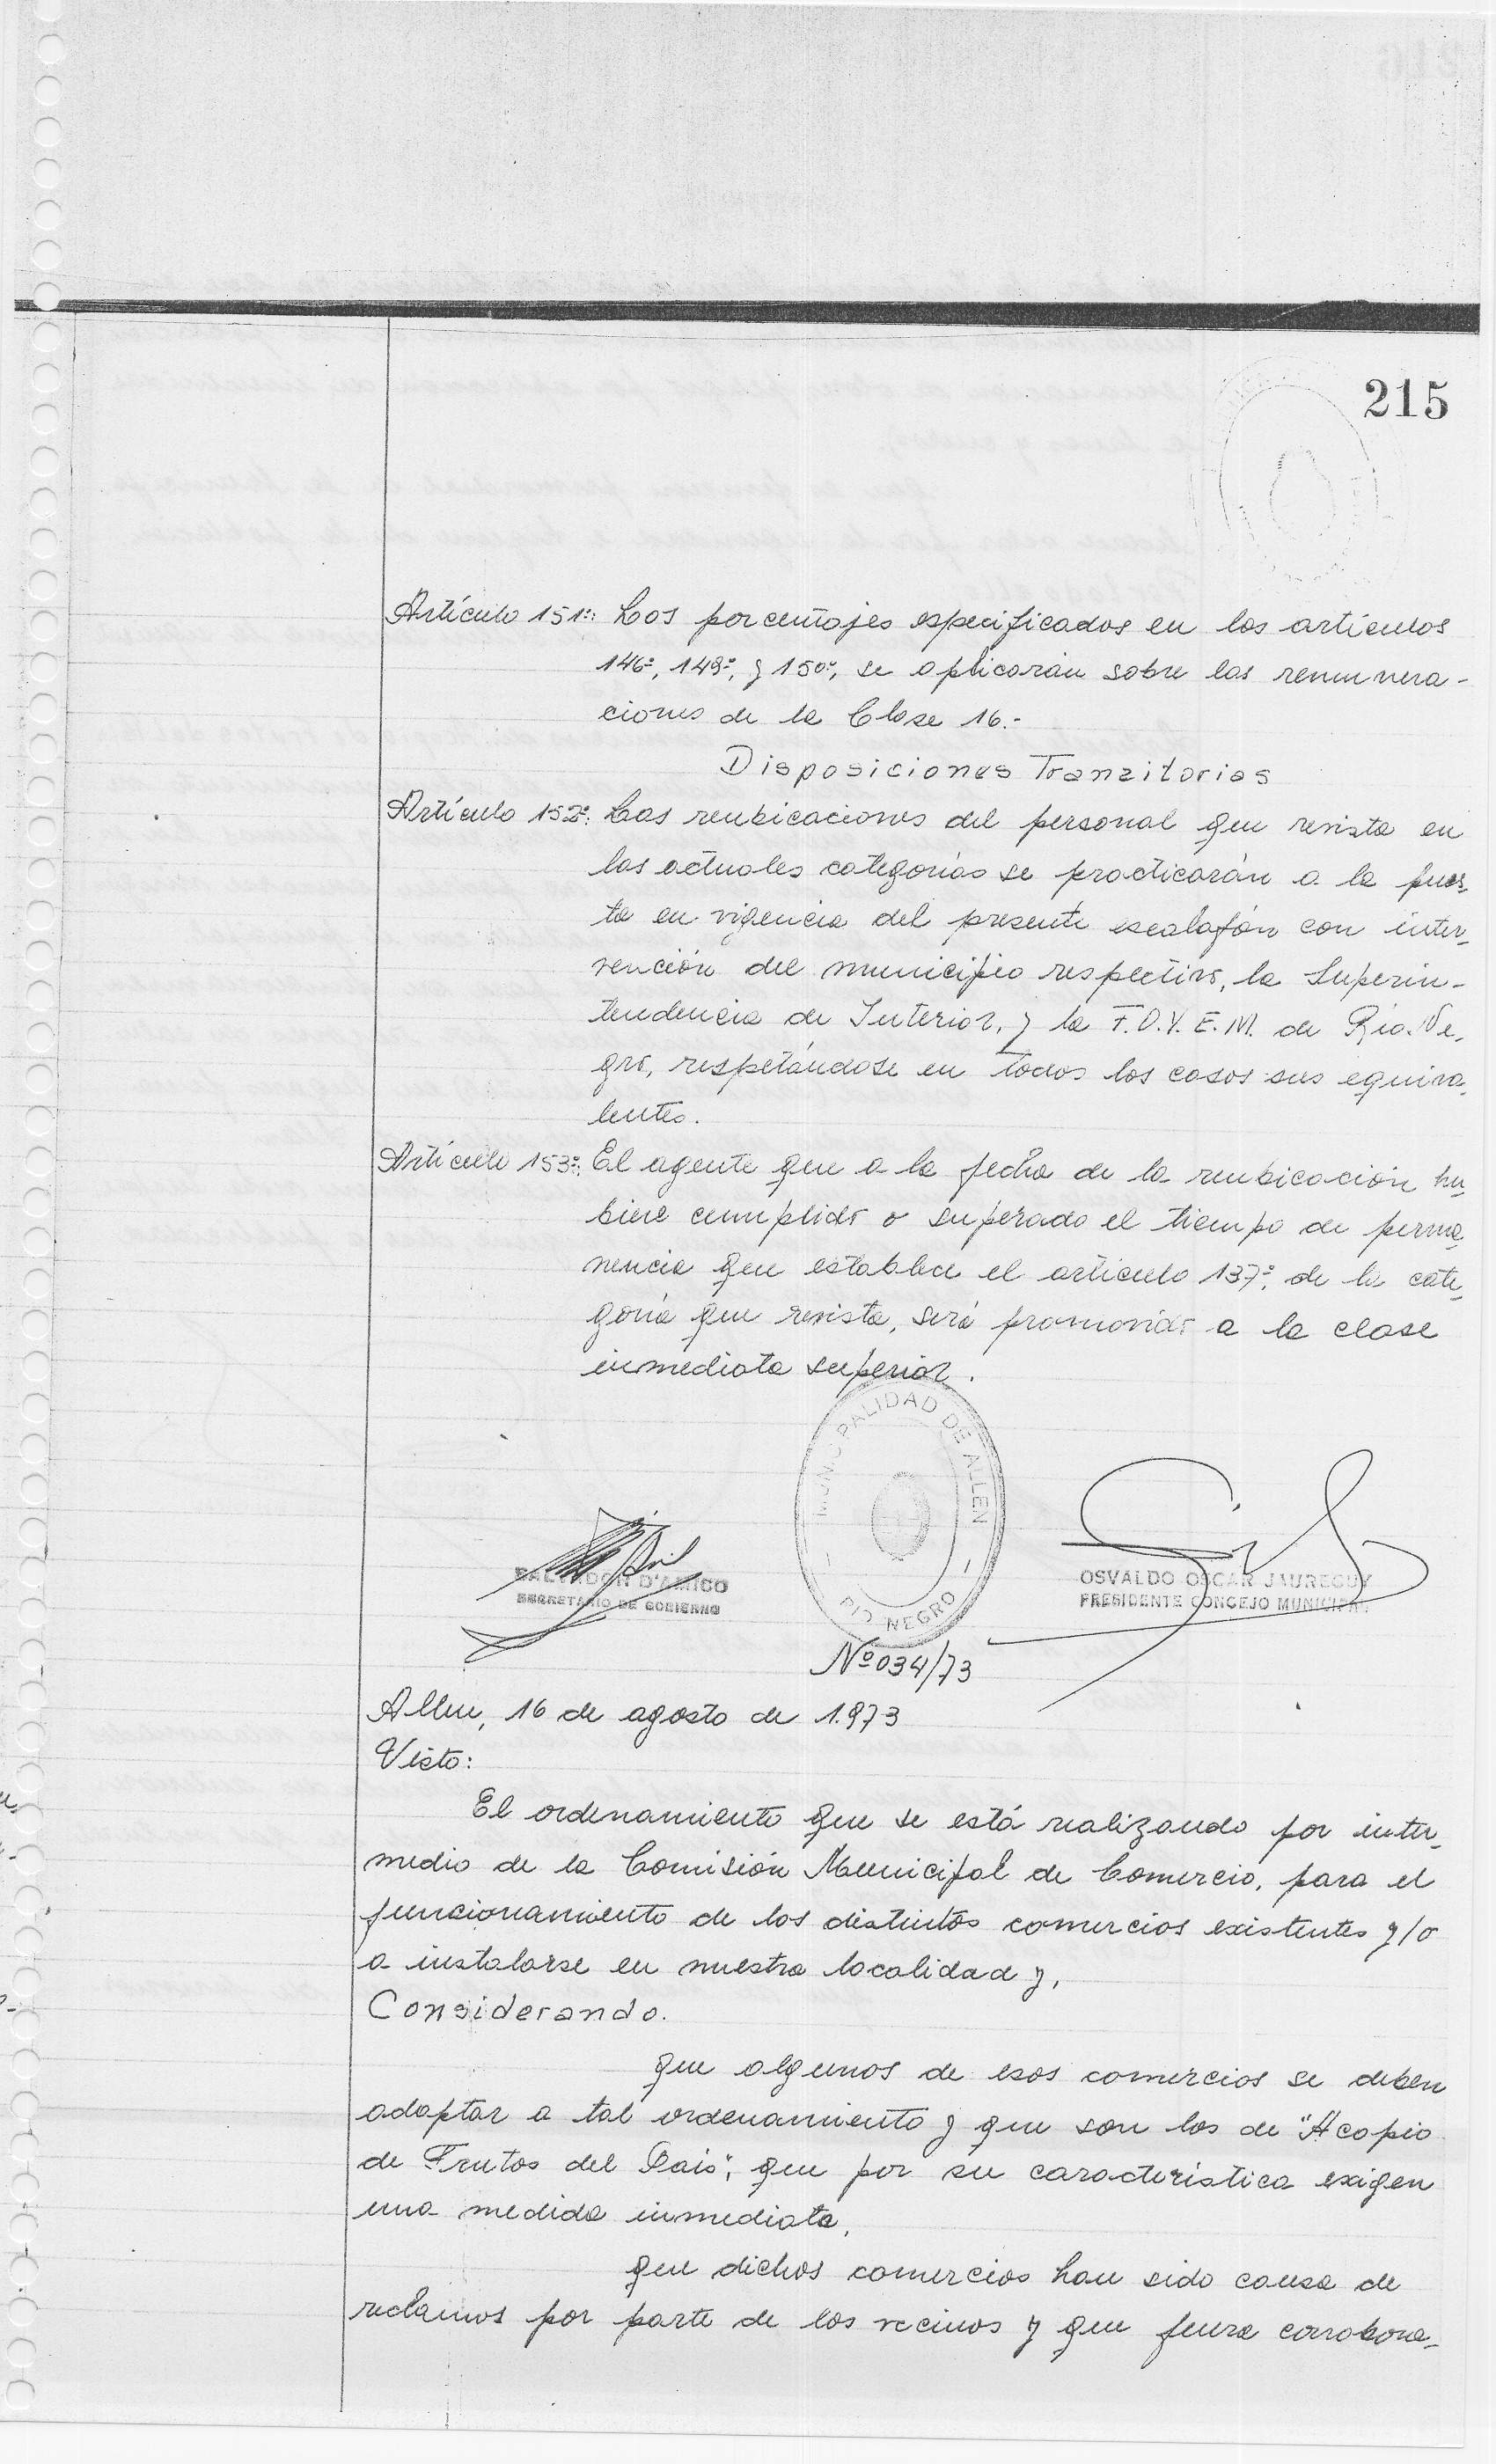 215
Artículo 151º: Los porcentajes especificados en los artículos
146º, 149º, y 150º, se aplicarán sobre las remunera-
ciones de la Clase 16.-
Disposiciones Tranzitorias
Artículo 152º: Las reubicaciones del personal que revista en
las actuales categorías se practicarán a la pues-
ta en vigencia del presente escalafón con inter-
vención del municipio respectivo, la Superin-
tendencia de Interior, y la F.O.Y.E.M. de Río Ne-
gro, respetándose en todos los casos sus equiva-
lentes.
Artículo 153º: El agente que a la fecha de la reubicación hu-
biere cumplido o superado el tiempo de perma-
nencia que establece el artículo 137º, de la cate-
goría que revista, será promovido a la clase
inmediata superior.
MUNICIPALIDAD DE ALLEN
RIO NEGRO
SALVADOR D'AMICO
SECRETARIO DE GOBIERNO
OSVALDO OSCAR JAUREGUY
PRESIDENTE CONCEJO MUNICIPAL
Nº 034/73
Allen, 16 de agosto de 1.973
Visto:
El ordenamiento que se está realizando por inter-
medio de la Comisión Municipal de Comercio, para el
funcionamiento de los distintos comercios existentes y/o
a instalarse en nuestra localidad y,
Considerando.
que algunos de esos comercios se deben
adaptar a tal ordenamiento y que son los de "Acopio
de Frutos del País", que por su característica exigen
una medida inmediata,
que dichos comercios han sido causa de
reclamos por parte de los vecinos y que fuera corrobora-